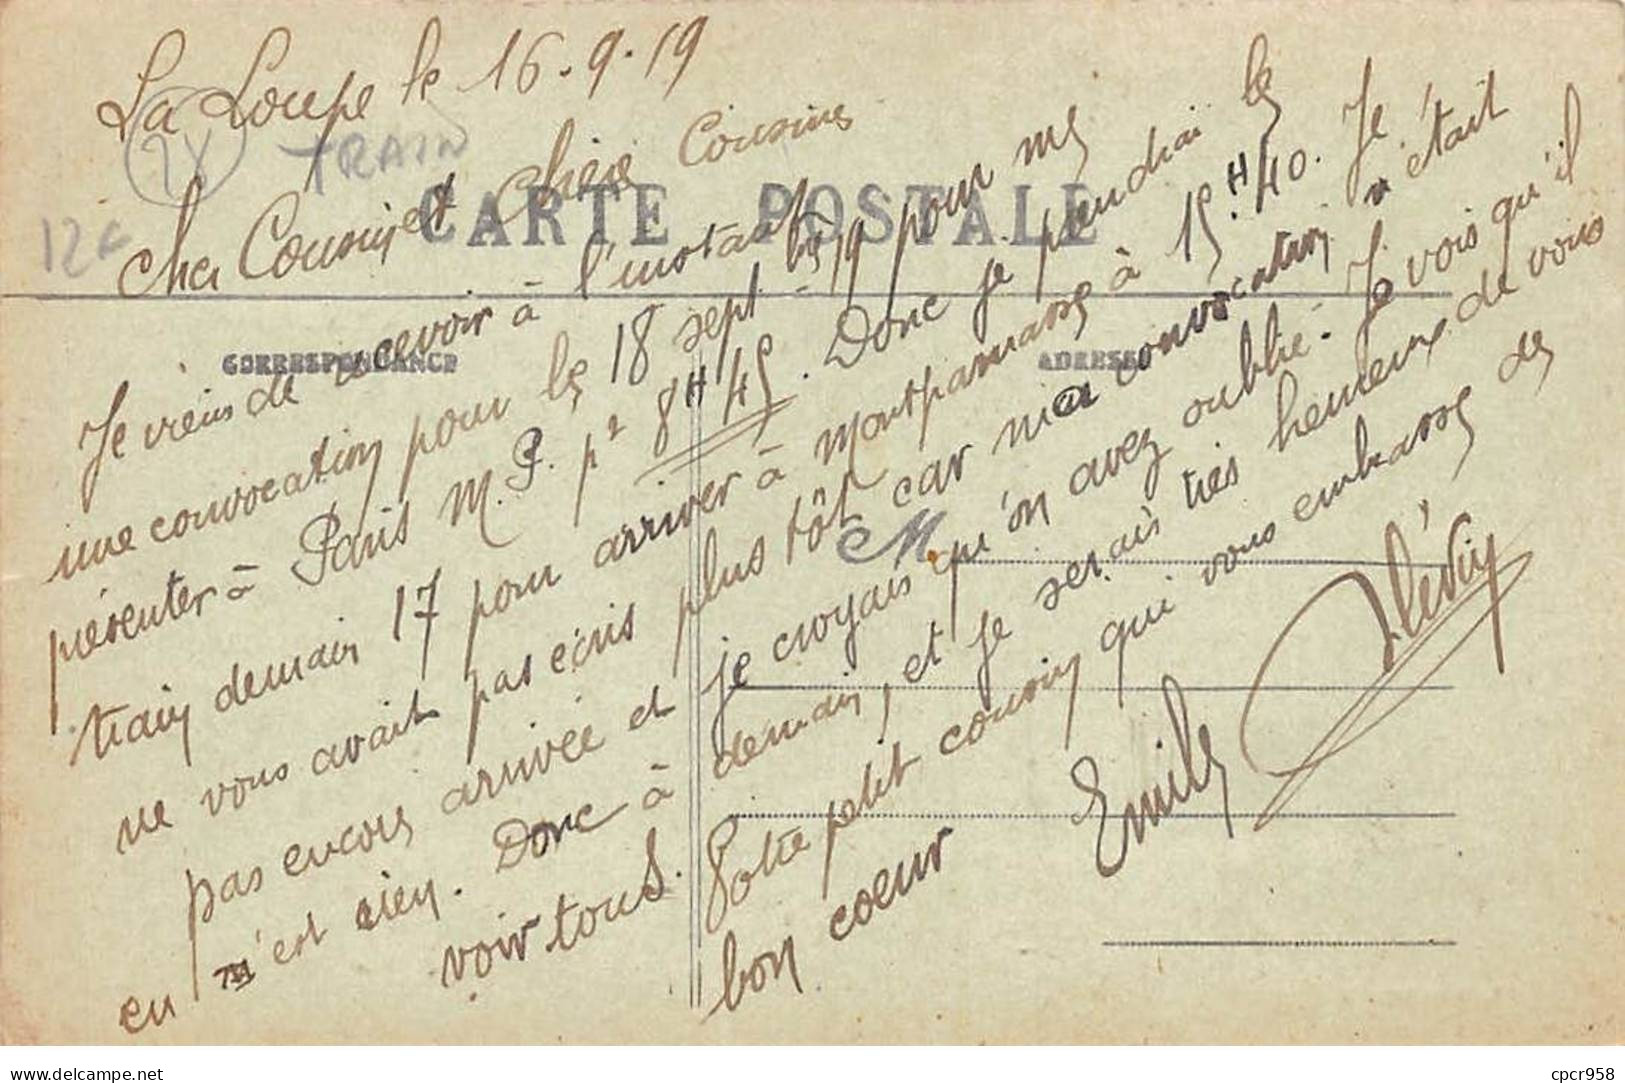 La Loupe le 16-9-19
TRAIN
12€
Cher Cousin et chère Cousine
CARTE POSTALE
CORRESPONDANCE
ADRESSE
Je viens de recevoir à l'instant
une convocation pour le 18 sept 19 pour me
présenter à Paris M.P. pr 8H45. Donc je prendrai le
train demain 17 pour arriver à montparnasse à 15H.40. Je
ne vous avait pas écris plus tôt car ma convocation n'était
pas encore arrivée et je croyais qu'on avez oublié. Je vois qu'il
en n'est rien. Donc à demain, et je serais très heureux de vous
voir tous. Votre petit cousin qui vous embrasse de
bon coeur
Emile Flévin
cpcr958
www.delcampe.net